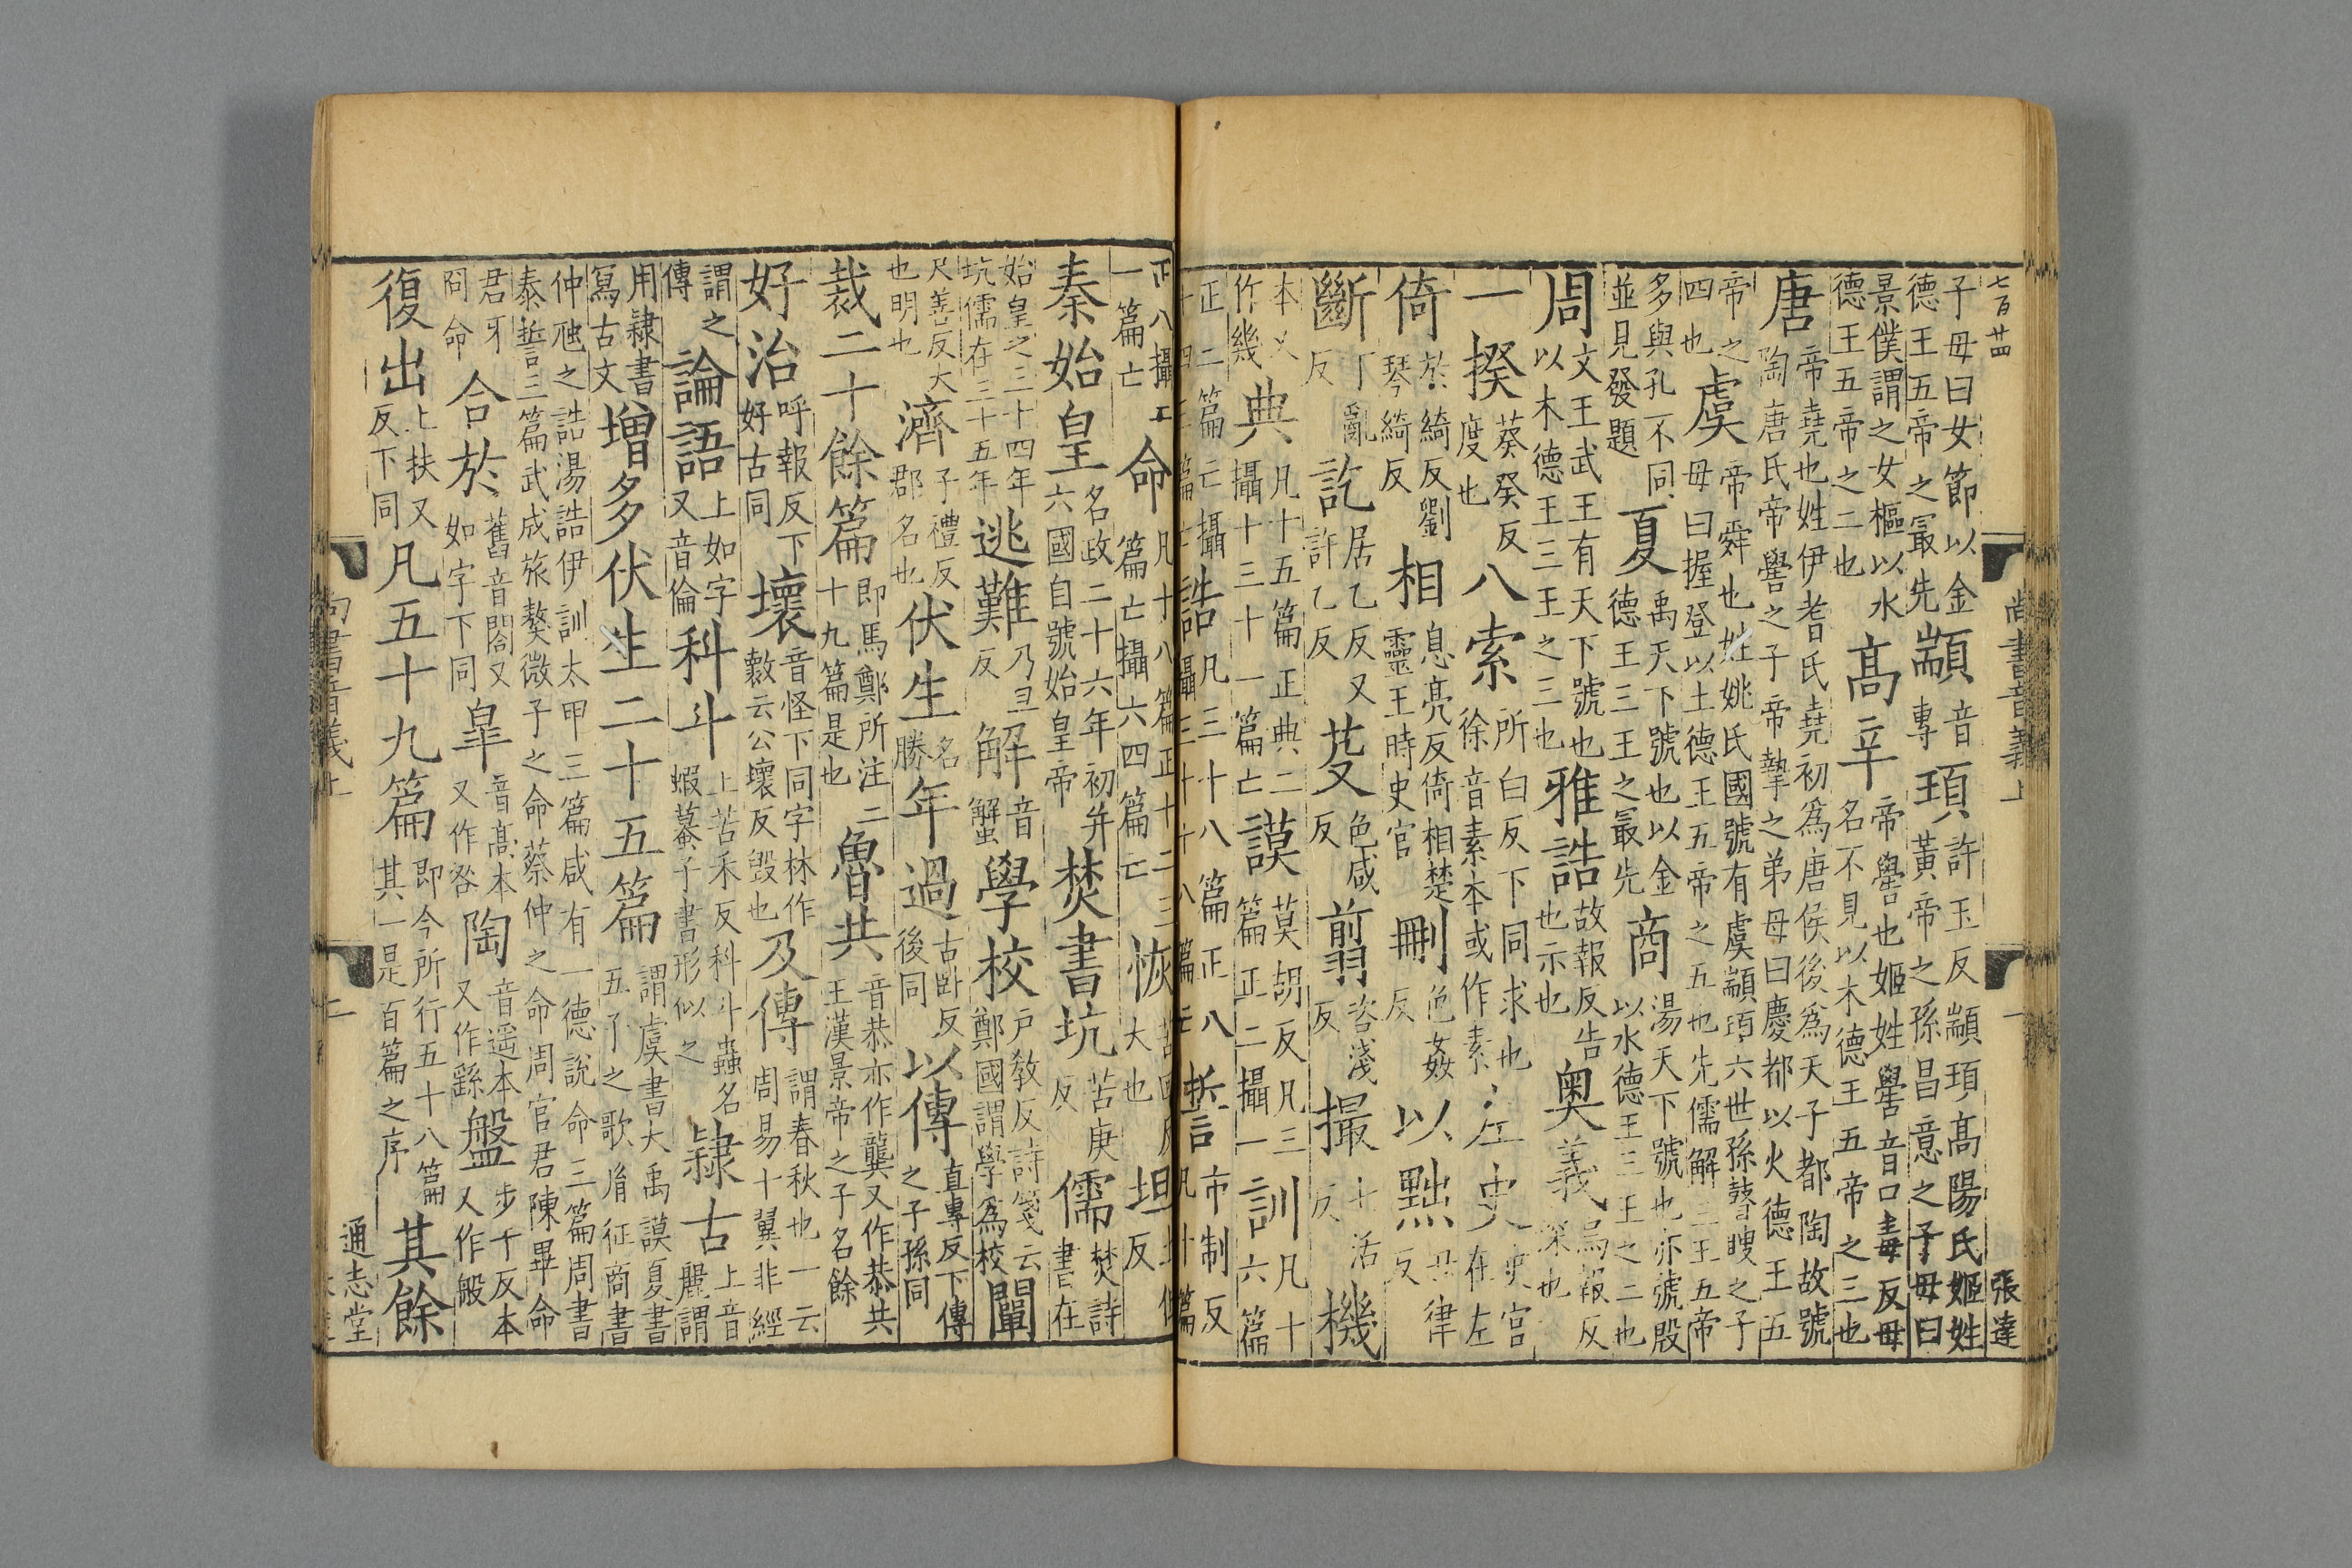 七百廿四 張達
尚書音義上 一
子母曰女節以金德王五帝之最先顓音專頊許玉反顓頊高陽氏姬姓黃帝之孫昌意之子母曰
景僕謂之女樞以水德王五帝之二也高辛帝嚳也姬姓嚳音口毒反母名不見以木德王五帝之三也
唐帝堯也姓伊耆氏堯初為唐侯後為天子都陶故號陶唐氏帝嚳之子帝摯之弟母曰慶都以火德王五
帝之四也虞帝舜也姓姚氏國號有虞顓頊六世孫瞽瞍之子母曰握登以土德王五帝之五也先儒解三王五帝
多與孔不同並見發題夏禹天下號也以金德王三王之最先商湯天下號也亦號殷以水德王三王之二也
周文王武王有天下號也以木德王三王之三也雅誥故報反告也示也奧義烏報反深也
一揆葵癸反度也八索所白反下同求也徐音素本或作素左史史官在左
倚於綺反劉琴綺反相息亮反倚相楚靈王時史官刪色姦反以黜丑律反
斷丁亂反訖居乙反又許乙反芟色咸反翦咨淺反撮七活反機
本又作幾典凡十五篇正典二攝十三十一篇亡謨莫胡反凡三篇正二攝一訓凡十六篇
正二篇亡攝十四三篇亡誥凡三十八篇正八攝三十十八篇亡誓市制反凡十篇
正八攝二一篇亡命凡十八篇正十二三篇亡攝六四篇亡恢苦回反大也坦土但反
秦始皇名政二十六年初并六國自號始皇帝焚書坑苦庚反儒焚詩書在
始皇之三十四年坑儒在三十五年逃難乃旦反解音蟹學校戶教反詩箋云鄭國謂學為校闡
尺善反大也明也濟子禮反郡名也伏生名勝年過古臥反後同以傳直專反下傳之子孫同
裁二十餘篇即馬鄭所注二十九篇是也魯共音恭亦作龔又作恭共王漢景帝之子名餘
好治呼報反下好古同壞音怪下同字林作𣀩云公壞反毀也及傳謂春秋也一云周易十翼非經
謂之傳論語上如字又音倫科斗上苦禾反科斗蟲名蝦蟇子書形似之隸古上音麗謂
用隸書寫古文增多伏生二十五篇謂虞書大禹謨夏書五子之歌胤征商書
仲虺之誥湯誥伊訓太甲三篇咸有一德說命三篇周書泰誓三篇武成旅獒微子之命蔡仲之命周官君陳畢命
君牙冏命合於舊音閤又如字下同皐音高本又作咎陶音遥本又作繇盤步干反本又作般
復出上扶又反下同凡五十九篇即今所行五十八篇其一是百篇之序其餘
尚書音義上 二
通志堂